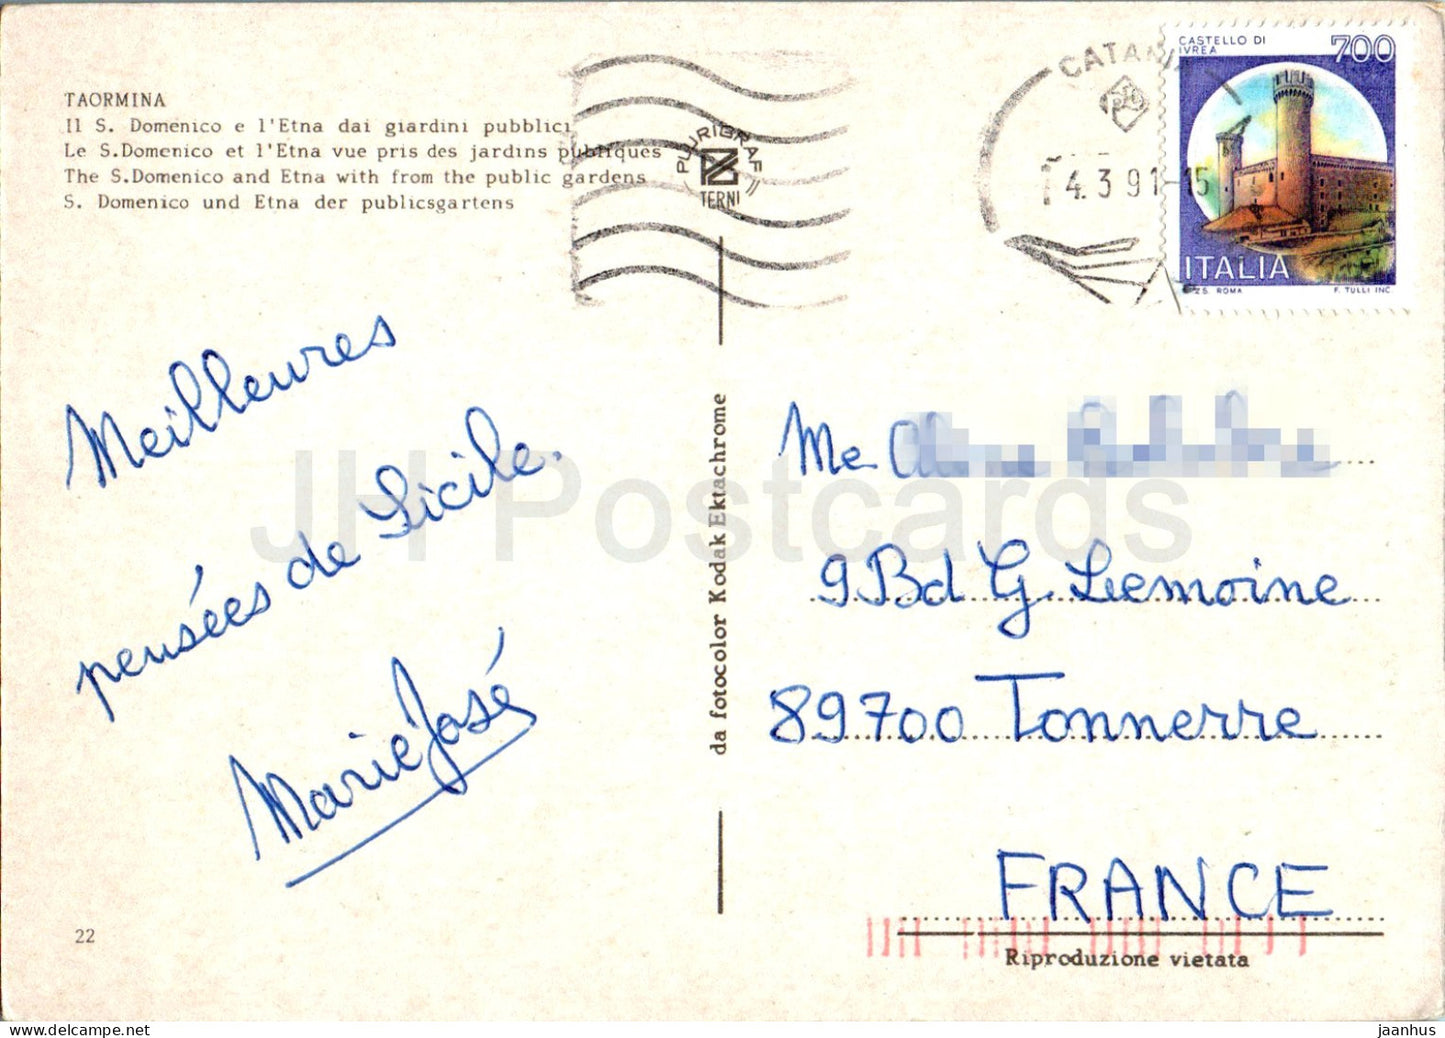 TAORMINA
Il S. Domenico e l'Etna dai giardini pubblici
Le S.Domenico et l'Etna vue pris des jardins publiques
The S.Domenico and Etna with from the public gardens
S. Domenico und Etna der publicsgartens
PLURIGRAF
TERNI
CATANIA
4.3.91-15
CASTELLO DI
IVREA
700
ITALIA
I.P.Z.S. ROMA
F. TULLI INC.
Meilleures
pensées de Sicile.
Marie José
22
da fotocolor Kodak Ektachrome
Me
9 Bd G. Lemoine
89700 Tonnerre
FRANCE
Riproduzione vietata
JH Postcards
hippostcard.com
jaanhus